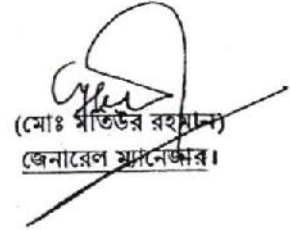 (মোঃ মতিউর রহমান)
জেনারেল ম্যানেজার।